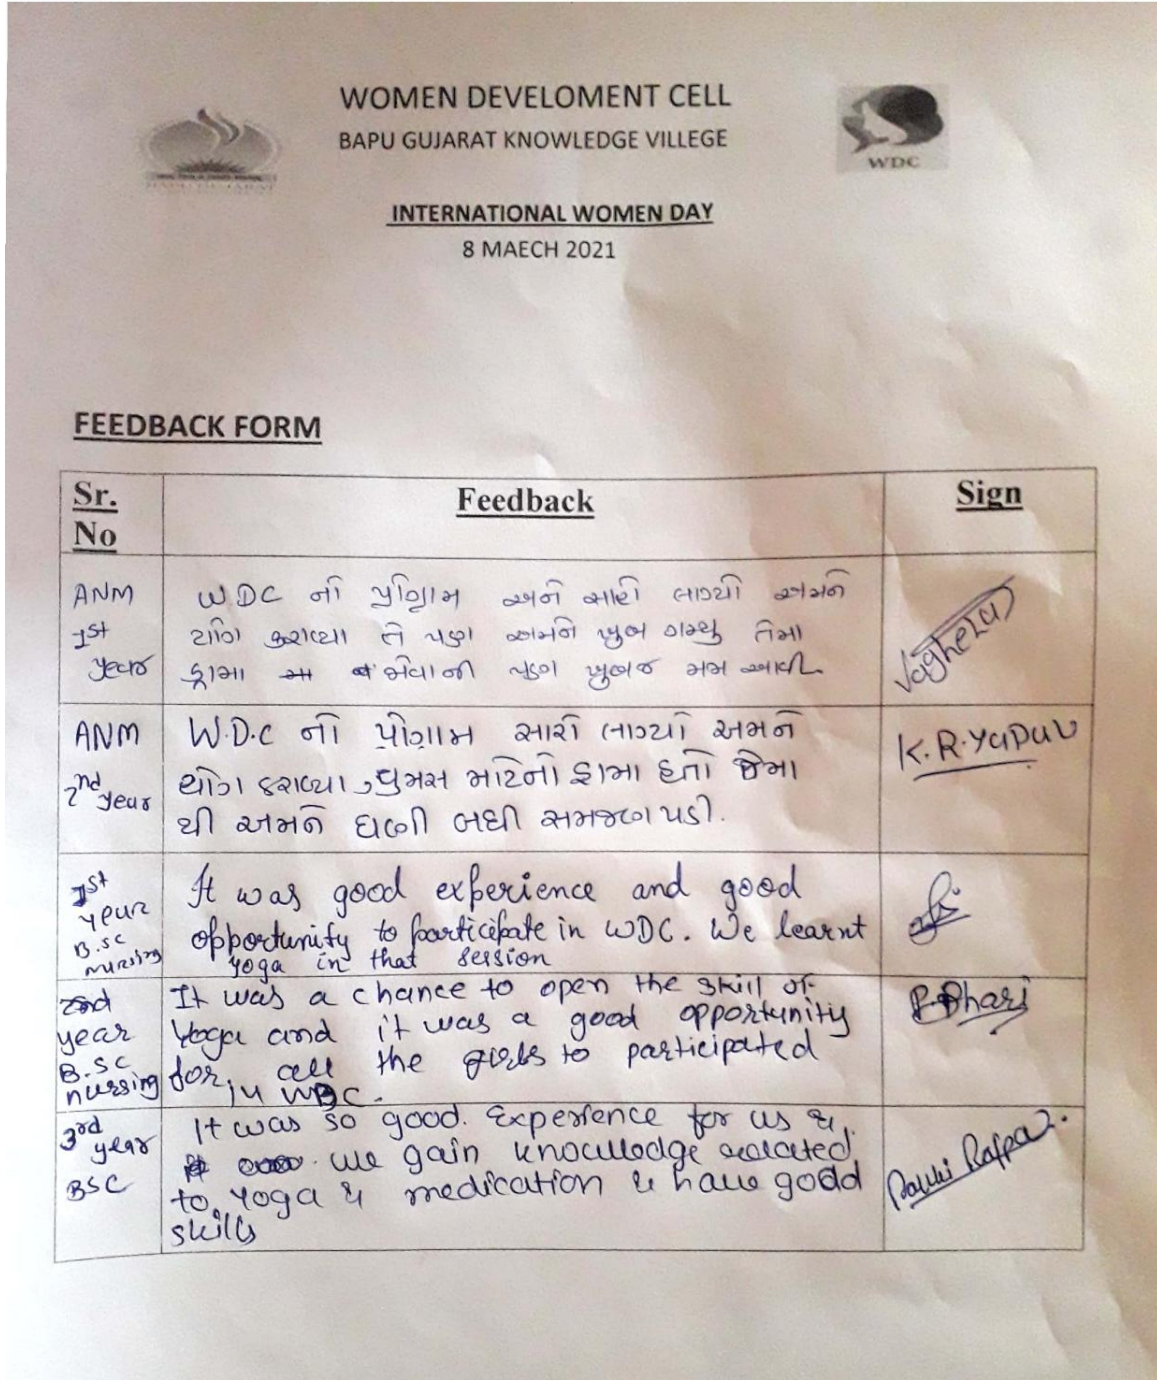 WOMEN DEVELOMENT CELL
BAPU GUJARAT KNOWLEDGE VILLEGE
WDC
INTERNATIONAL WOMEN DAY
8 MAECH 2021
FEEDBACK FORM
Sr. No
Feedback
Sign
ANM 1st year
WDC નો પ્રોગ્રામ અને સારો લાગ્યો અમને
યોગ કરાવ્યા તે પણ અમને ખુબ ગમ્યુ તેમા
ડ્રામા પણ ખુબજ
Vaghela
ANM 2nd year
W.D.C નો પ્રોગ્રામ સારો લાગ્યો અમને
યોગ કરાવ્યા, વુમસ માટેનો ડ્રામા હતો જેમા
થી અમને ઘણી બધી સમજણ પડી.
K.R.Yadav
1st year B.sc nursing
It was good experience and good
opportunity to participate in WDC. We learnt
yoga in that session
2nd year B.sc nursing
It was a chance to open the skill of
Yoga and it was a good opportunity
for all the girls to participated
in WDC.
3rd year BSC
It was so good. Experience for us &
we gain knowledge related
to yoga & medication & have good
skills